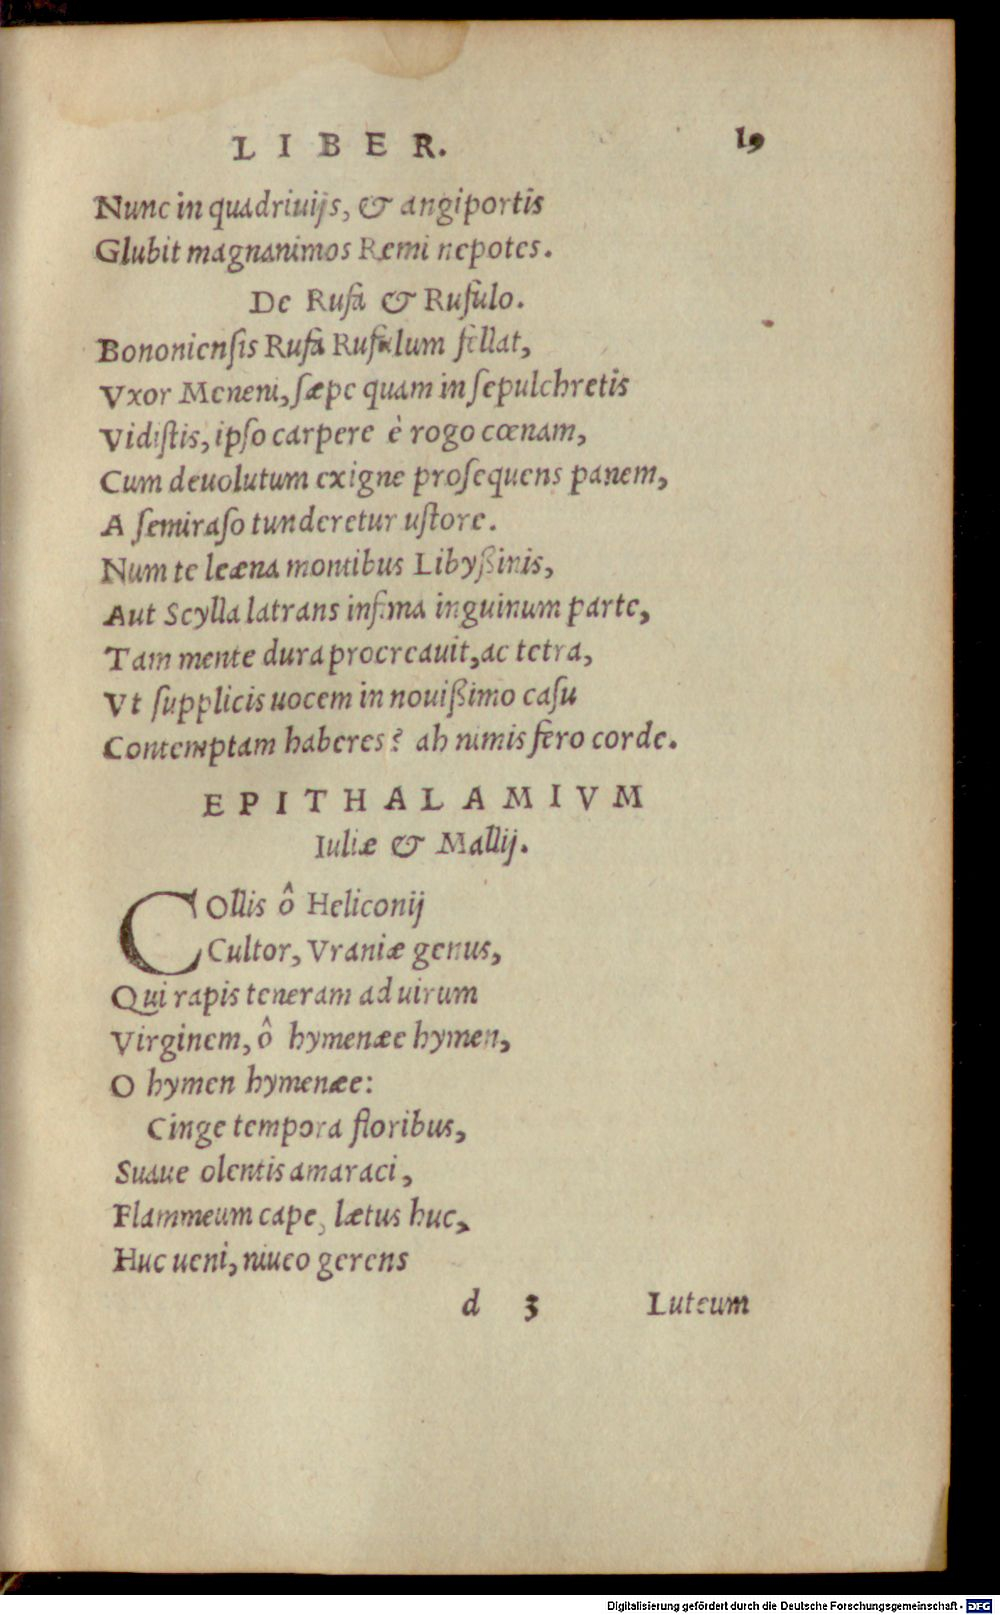 LIBER. 19
Nunc in quadriuijs, & angiportis
Glubit magnanimos Remi nepotes.
De Rufa & Rufulo.
Bononiensis Rufa Rufulum fellat,
Vxor Meneni, sæpe quam in sepulchretis
Vidistis, ipso carpere è rogo cœnam,
Cum deuolutum exigne prosequens panem,
A semiraso tunderetur ustore.
Num te leæna montibus Libyßinis,
Aut Scylla latrans infima inguinum parte,
Tam mente dura procreauit, ac tetra,
Vt supplicis uocem in nouißimo casu
Contemptam haberes? ah nimis fero corde.
EPITHALAMIVM
Iuliæ & Mallij.
COllis ô Heliconij
Cultor, Vraniæ genus,
Qui rapis teneram ad uirum
Virginem, ô hymenæe hymen,
O hymen hymenæe:
Cinge tempora floribus,
Suaue olentis amaraci,
Flammeum cape, lætus huc,
Huc ueni, niueo gerens
d 3 Luteum
Digitalisierung gefördert durch die Deutsche Forschungsgemeinschaft - DFG